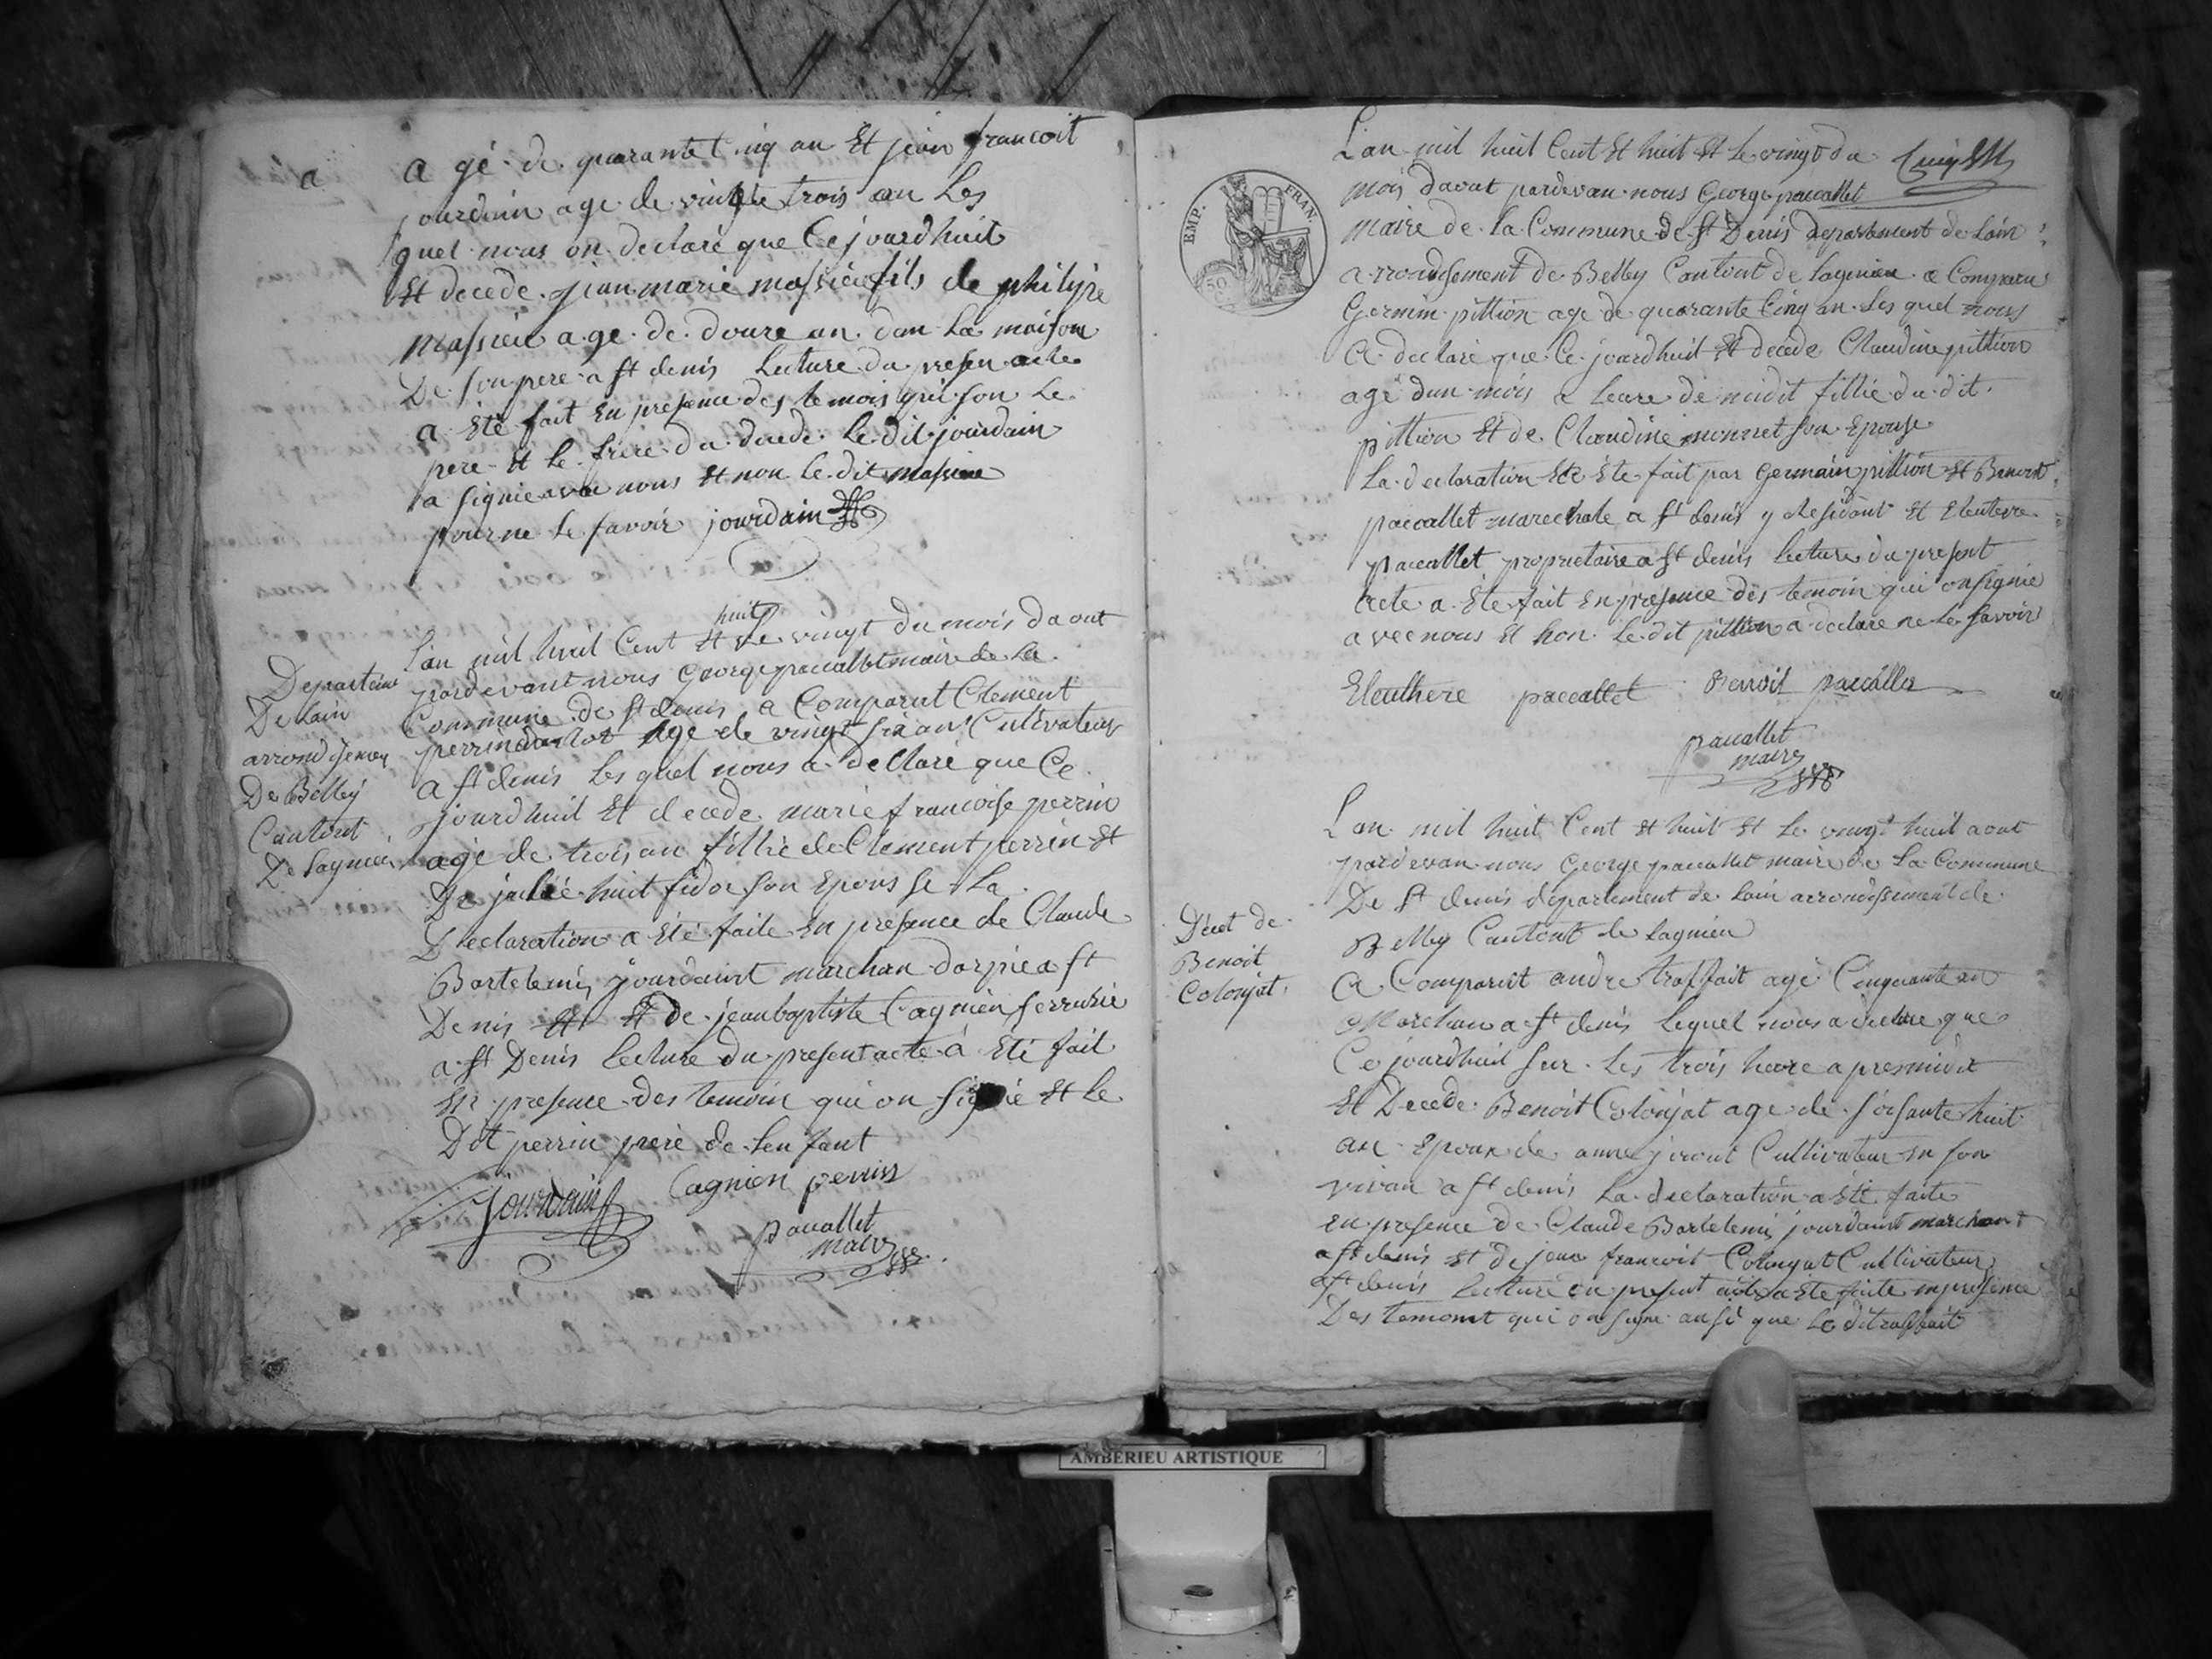 a
a gé de quarante t inq an Et jean francoit
jourdain age de vinghte trois an Les
quel nous on declaré que Ce jourdhuit
Et decede jean marie massieu fils de philipe
massieu a ge de doure an dan La maison
De son pere a st denis Lecture du presen acte
a Eté fait En presence des temois qui son Le
pere Et le frère du decede Le dit jourdain
a signie avec nous Et non Le dit massieu
pour ne Le savoir jourdain
Departeme
De Lain
arrondisemen
De Belley
Cantont
De Lagnieu
huit
L'an mil huit Cent Et Le vingt du mois daout
pardevant nous George paccallet maire de La
Commune de st denis a Comparut Clement
perrin age de vingt six an Cultivateur
a st denis Les quel nous a declaré que Ce
jourdhuit Et decede marie francoise perrin
agé de trois an fillie de Clement perrin Et
De julie huit son Epousse La
Declaration a Eté faite En presence de Claude
Bartelemi jourdaint marchan a st
Denis Et de jean baptiste Cagnien serrurie
a st Denis Lecture du present acte à Eté fait
En presence des temoin qui on signié Et Le
Dit perrin pere de Lenfant
Jourdain Cagnien perrin
paccallet
maire
EMP. FRAN.
50
L'an mil huit Cent Et huit Et Le vingt du
mois davut pardevan nous George paccallet
maire de La Commune de st Denis departement de Lain
arrondisement de Belley Cantont de Lagnieu a Comparu
Germin pittion age de quarante Cinq an Les quel nous
a declaré que Ce jourdhuit Et decede Claudine pittion
agé dun mois a Leure de midit fillie du dit
pittion Et de Claudine monnet son Epouse
La declaration Ete fait par Germain pittion Et Benoit
paccallet marechale a st denis y Residant Et Eleutere
paccallet proprietaire a st denis Lecture du present
acte a Ete fait En presence des temoin qui on signie
avec nous Et non Le dit pittion a declare ne Le savoir
Eleuthere paccallet Benoit paccallet
paccallet
maire
Décet de
Benoit
Colonjat
L'an mil huit Cent Et huit Et Le vingt huit aout
pardevan nous George paccallet maire de La Commune
De st denis departement de Lain arrondissement de
Belley Cantont de Lagnieu
a Comparut andre traffait agé Cinquante an
Marchan a st denis Lequel nous a declare que
Ce jourdhuit sur Les trois heure apresmidit
Et Decede Benoit Colonjat age de soisante huit
an Epoux de anne jirout Cultivateur En son
vivan a st denis La declaration a Eté faite
En presence de Claude Bartelemi jourdaint marchant
a st denis Et de jean francoit Colonjat Cultivateur
a st denis Lecture du present acte a Ete faite En presence
Des temoint qui on signe ansi que Le dit traffait
AMBERIEU ARTISTIQUE